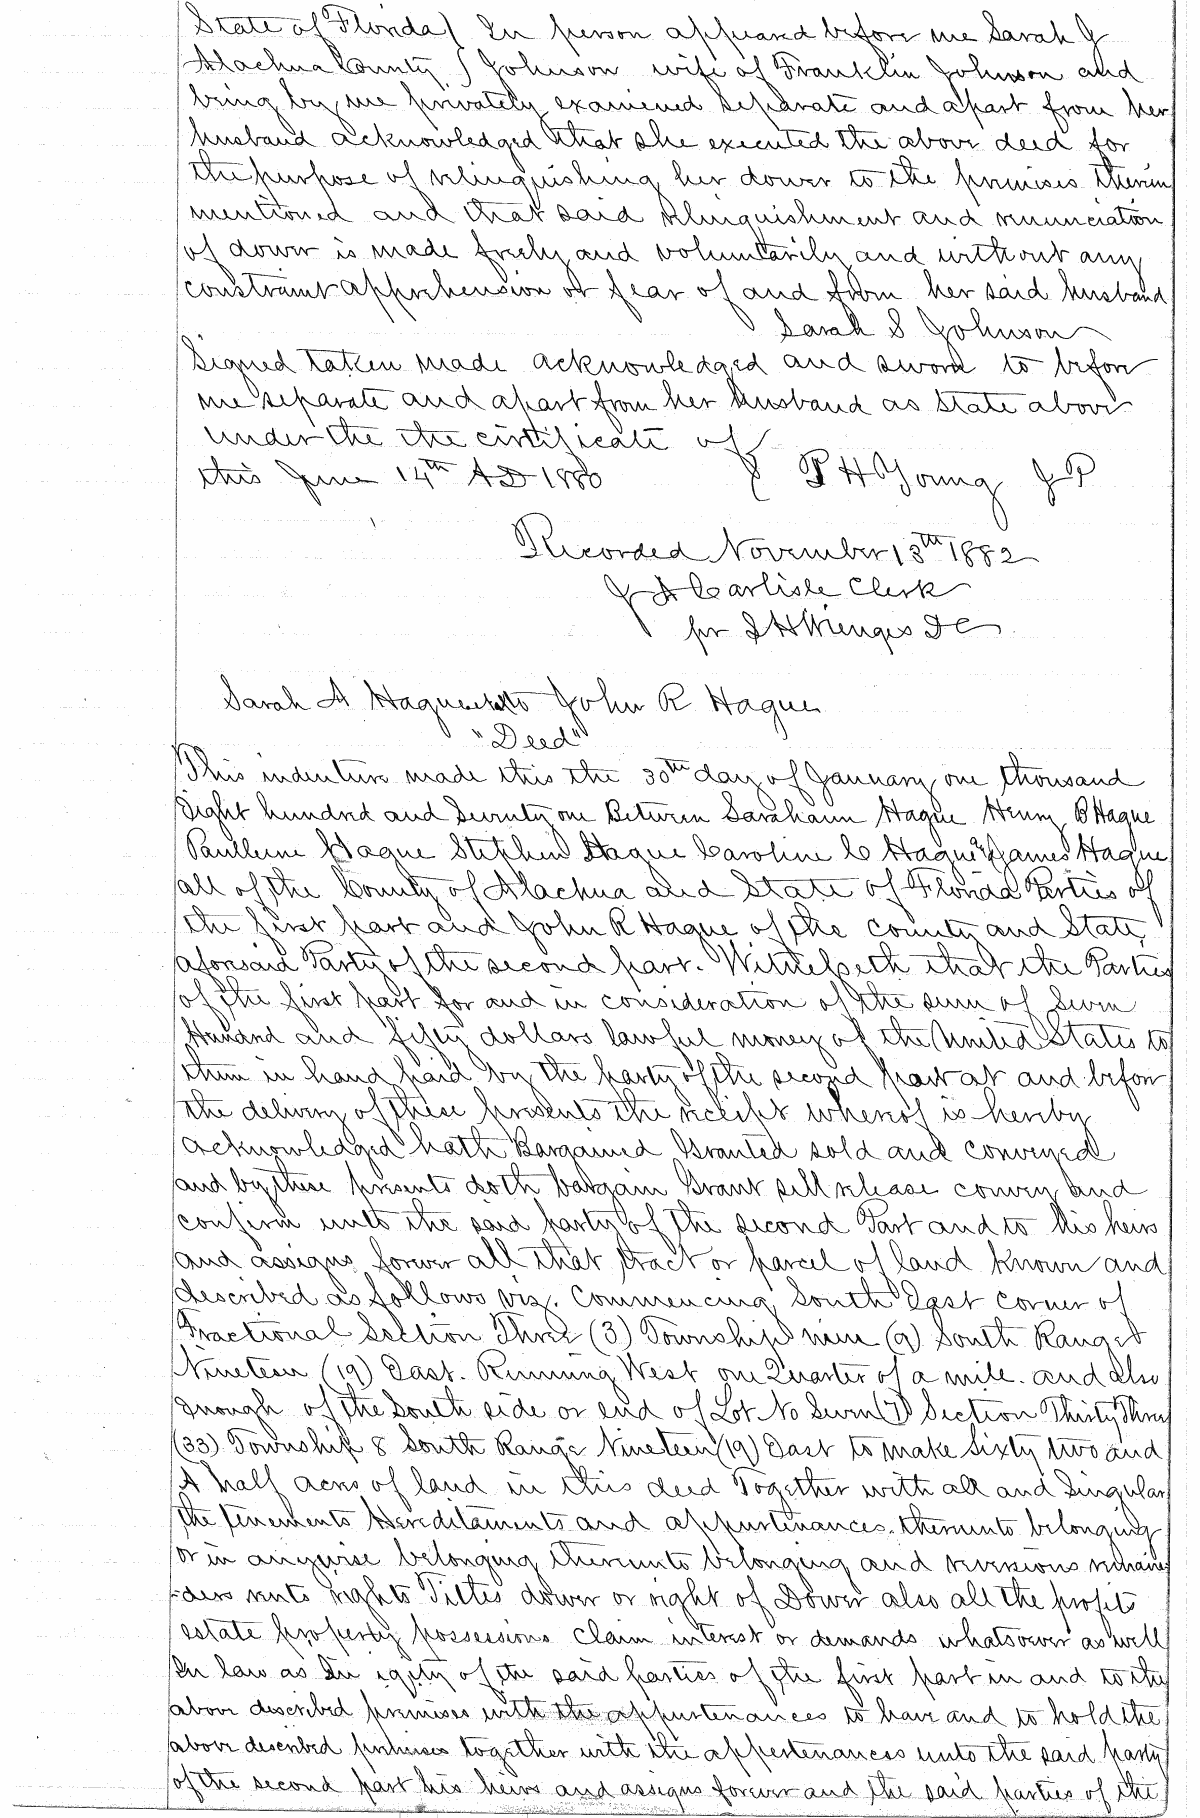 State of Florida } In person appeared before me Sarah J
Alachua County } Johnson wife of Franklin Johnson and
being by me privately examined separate and apart from her
husband acknowledged that she executed the above deed for
the purpose of relinquishing her dower to the premises therein
mentioned and that said relinquishment and renunciation
of dower is made freely and voluntarily and without any
constraint apprehension or fear of and from her said husband
Sarah S Johnson
Signed taken made acknowledged and sworn to before
me separate and apart from her husband as State above
under the the certificate of
this June 14th AD 1880 } P H Young J P
Recorded November 13th 1882
J A Carlisle Clerk
for I H Wienges D C
Sarah A Hague to John R Hague
"Deed"
This indenture made this the 30th day of January one thousand
Eight hundred and Seventy one Between Sarahann Hague Henry B Hague
Paulleine Hague Stephen Hague Caroline C Hague & James Hague
all of the County of Alachua and State of Florida Parties of
the first part and John R Hague of the County and State
aforesaid Party of the second part. Witnesseth that the Parties
of the first part for and in consideration of the sum of Seven
Hundred and fifty dollars lawful money of the United States to
them in hand paid by the party of the second part at and before
the delivery of these presents the receipt whereof is hereby
acknowledged hath Bargained Granted sold and conveyed
and by these presents doth bargain Grant sell release convey and
confirm unto the said party of the second Part and to his heirs
and assigns forever all that tract or parcel of land known and
described as follows viz. Commencing South East corner of
Fractional Section Three (3) Township nine (9) South Range
Nineteen (19) East. Running West one Quarter of a mile. and also
Enough of the South side or end of Lot No Seven (7) Section Thirty Three
(33) Township 8 South Range Nineteen (19) East to make Sixty two and
A half acres of land in this deed Together with all and Singular
the tenements Hereditaments and appurtenances. thereunto belonging
or in anywise belonging thereunto belonging and reversions remain
-ders rents rights Tittes dower or right of Dower also all the profits
estate property possessions claim interest or demands whatsoever as well
In law as In eqity of the said parties of the first part in and to the
above described premises with the appurtenances to have and to hold the
above described premises together with the appertenances unto the said party
of the second part his heirs and assigns forever and the said parties of the